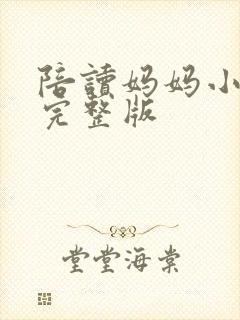 陪讀妈妈小
完整版
堂堂海棠